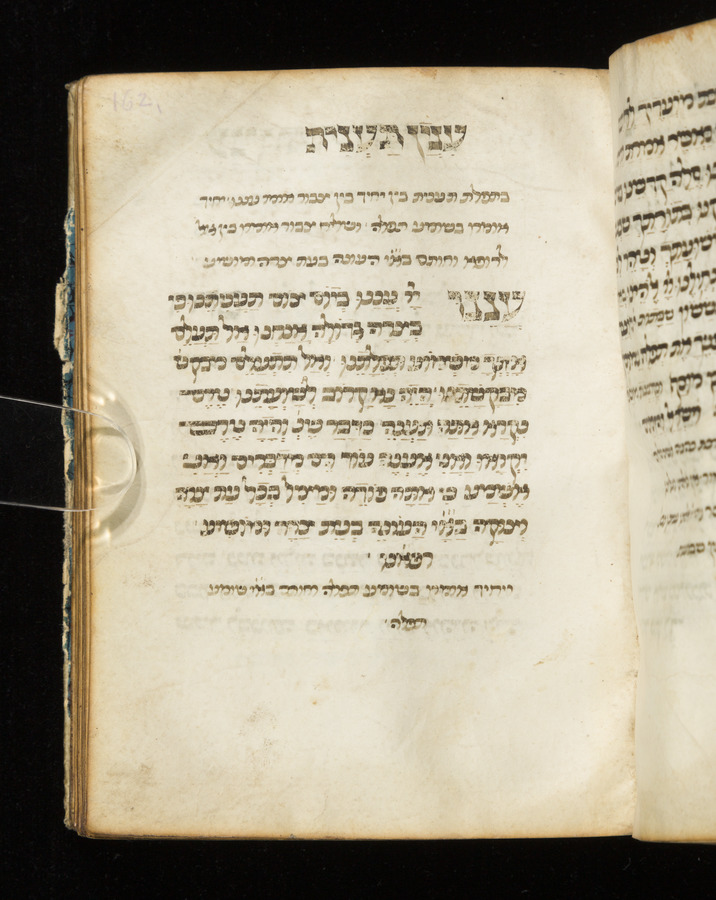 עִנְיַן תַּעֲנִית
בתפלת תענית בין יחיד בין צבור אומר עננו יחיד
אומרו בשומע תפלה ושליח צבור אומרו בין גואל
לרופא וחותם בא״י העונה בעת צרה ומושיע
עֲנֵנוּ יי׳ עֲנֵנוּ בְּיוֹם צוֹם תַּעֲנִיתֵנוּ כִּי
בְצָרָה גְדוֹלָה אֲנַחְנוּ וְאַל תַּעְלֵם
אָזְנְךָ מִשְּׁמוֹעַ תְּפִלָּתֵנוּ וְאַל תִּתְעַלָּם מִבַּקָּשׁ
מִבַּקָּשָׁתֵנוּ הֱיֵה נָא קָרוֹב לְשַׁוְעָתֵנוּ טֶרֶם
נִקְרָא אַתָּה תַעֲנֶה נְדַבֵּר וְהָיָה טֶרֶם
יִקְרָאוּ וַאֲנִי אֶעֱנֶה עוֹד הֵם מְדַבְּרִים וַאֲנִי
אֶשְׁמָע כִּי אַתָּה פוֹדֶה וּמַצִּיל בְּכָל עֵת צָרָה
וְצוּקָה בא״י הָעוֹנֶה בְּעֵת צָרָה וּמוֹשִׁיעַ
ויחיד אומרו בשומע תפלה וחותם בא״י שומע
תפלה